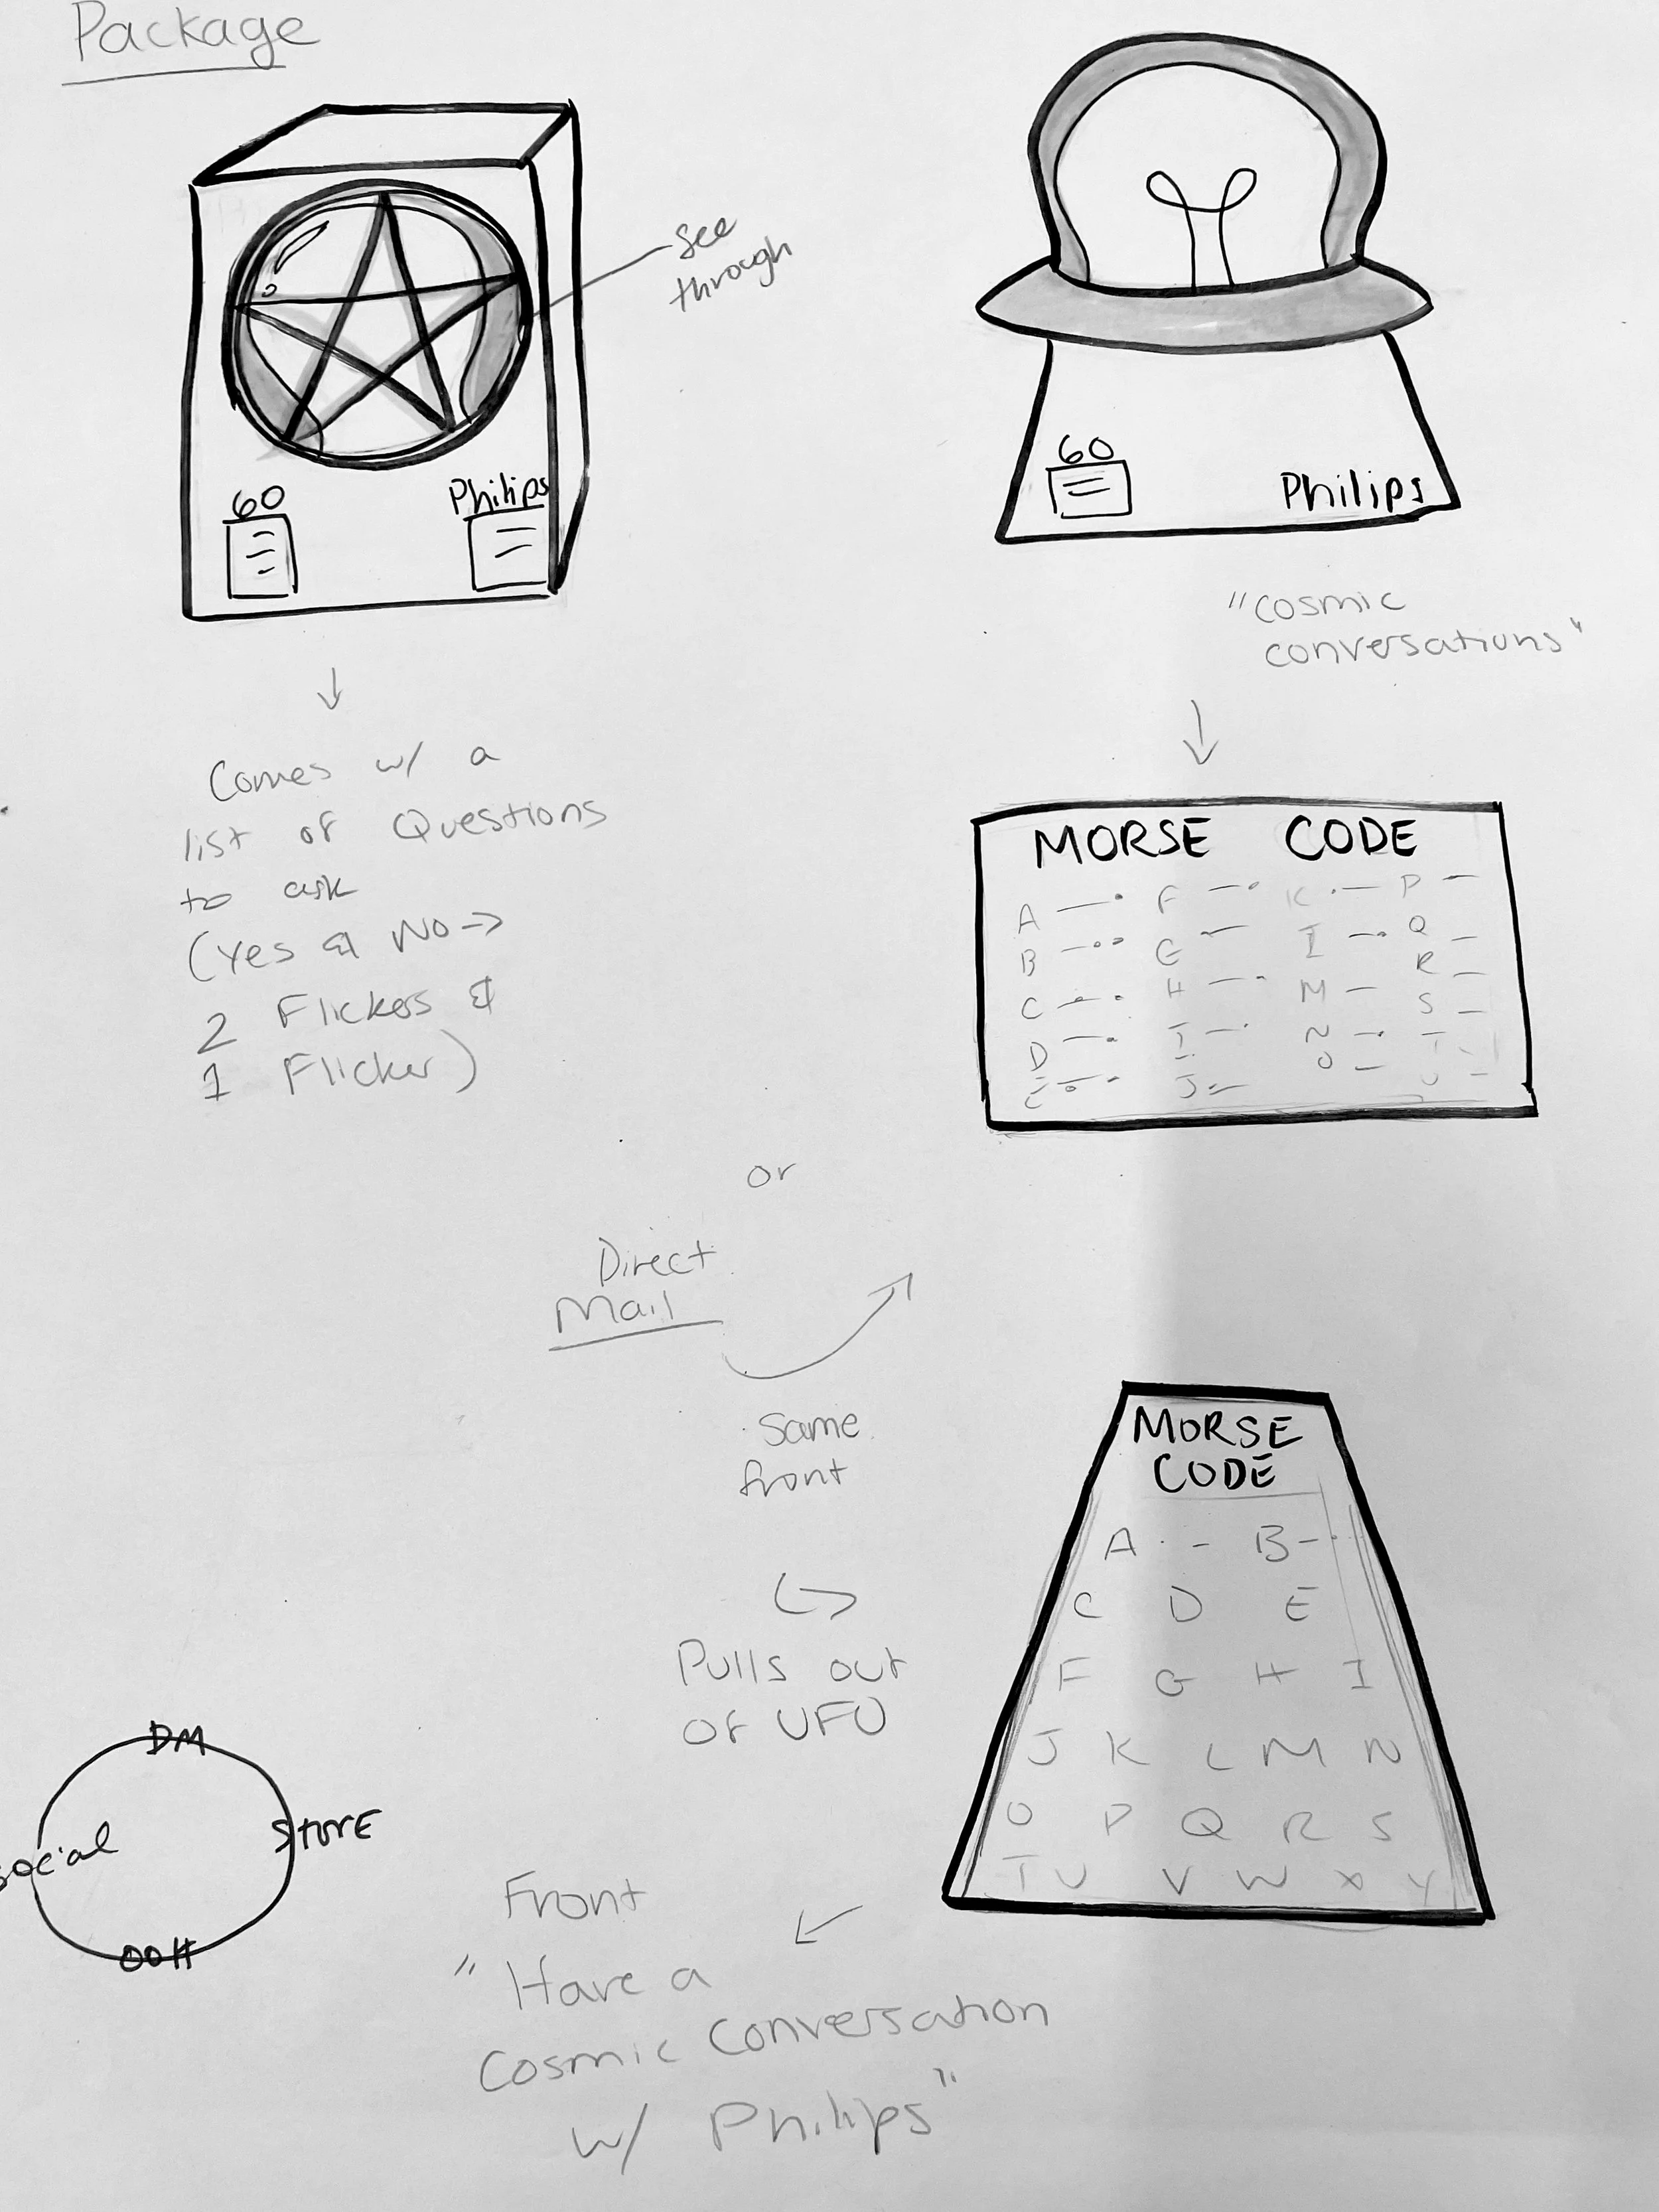 Package
See
through
60
Philips
60
Philips
"cosmic
conversations"
Comes w/ a
list of Questions
to ask
(Yes & No →
2 Flickers &
1 Flicker)
MORSE CODE
A —• F —• K •— P —
B —•• G •— I —• Q —
C •—• H —• M — R —
D —• I —• N —• S —
E •—• J — O — T
U —
or
Direct
Mail
same
front
Pulls out
of UFO
MORSE
CODE
A • – B – •
C D E
F G H I
J K L M N
O P Q R S
T U V W X Y
DM
Social
STORE
OOH
Front
"Have a
Cosmic Conversation
w/ Philips"